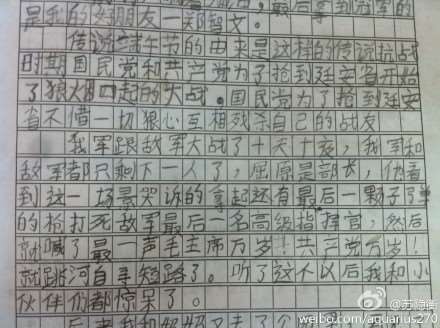 最后拿到冠军的
是我的好朋友一郑智文。
传说端午节的由来是这样的传说抗战
时期国民党和共产党为了抢到延安省开始
了狼烟四起的大战。国民党为了抢到延安
省不惜一切狠心互相残杀自己的战友
我军跟敌军大战了十天十夜，我军和
敌军都只剩下一人了，屈原是部长，他看
到这一场景哭诉的拿起还有最后一颗子弹
的枪打死敌军最后一名高级指挥官，然后
就喊了最一声毛主席万岁！共产党万岁！
就跳河自寻短路了。听了这个以后我和小
伙伴们都惊呆了。
后来我和奶奶又去了个
@苏隐衡
weibo.com/aquarius270